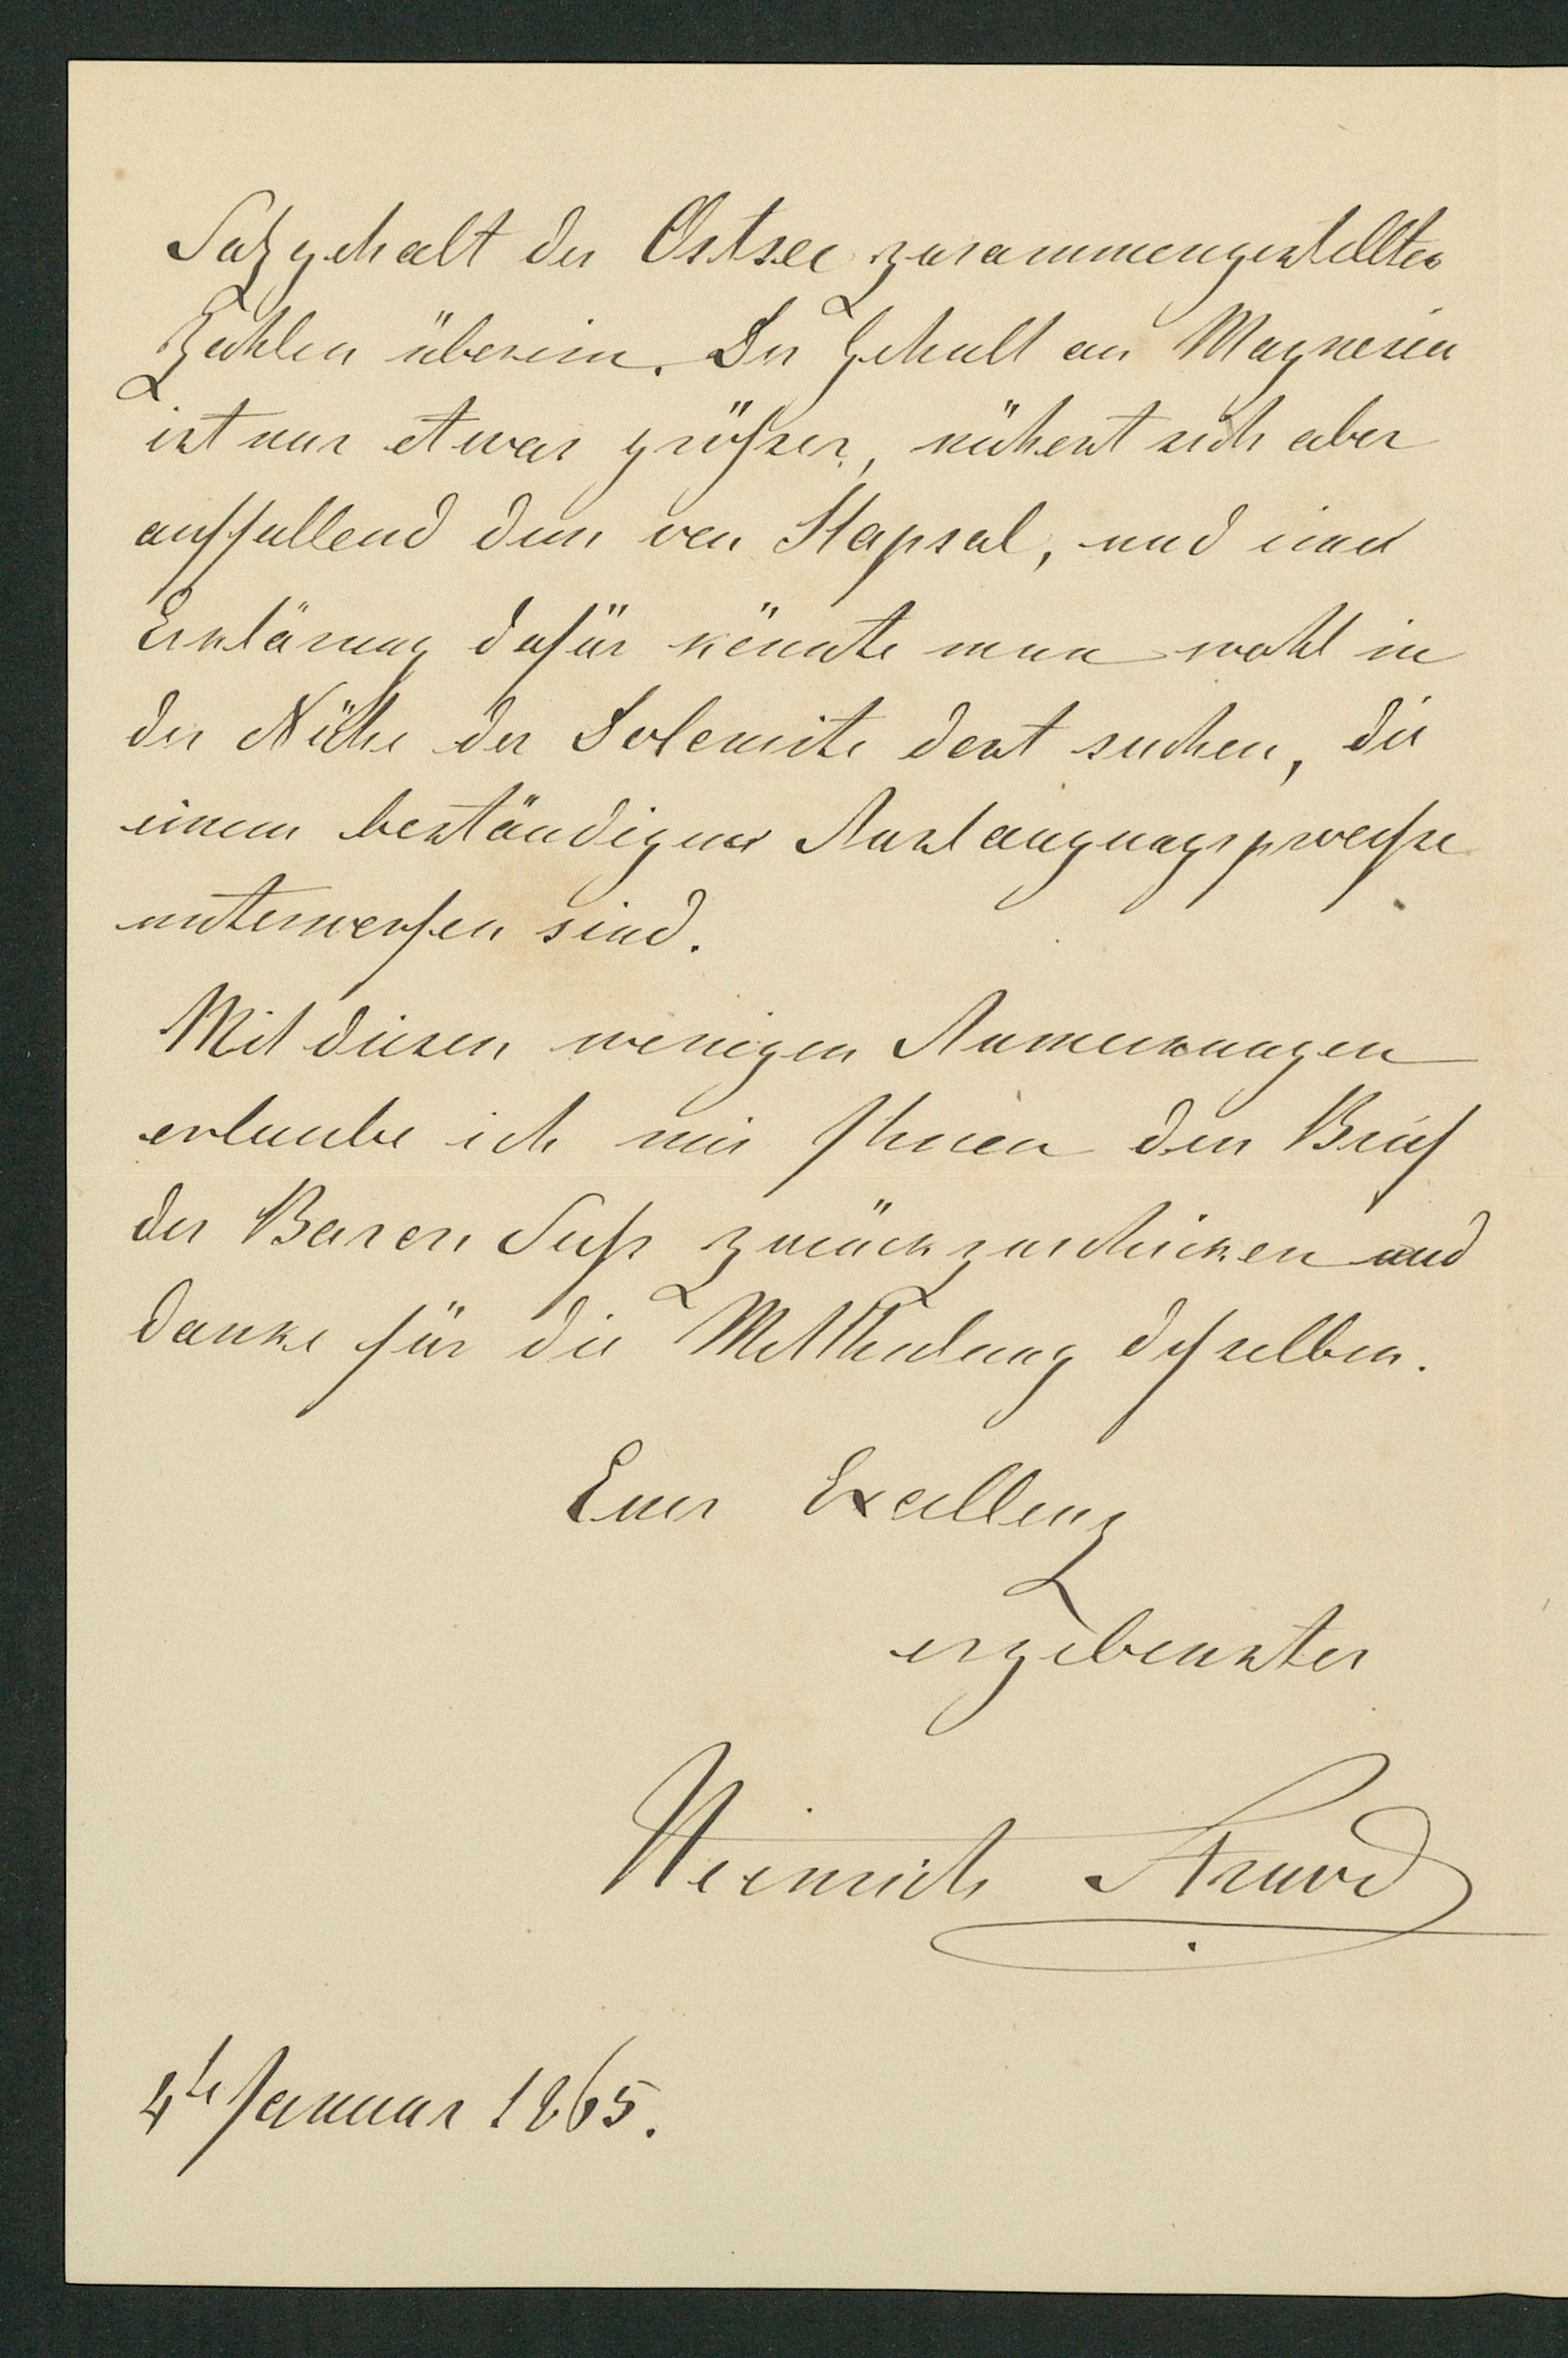 Salzgehalt der Ostsee zusammengestellten
Zahlen überein. Der Gehalt an Magnesia
ist nur etwas größer, nähert sich aber
auffallend dem von Hapsal, und eine
Erklärung dafür könnte man wohl in
der Nähe der Dolomite dort suchen, die
einem beständigen Auslaugungsprocesse
unterworfen sind.
Mit diesen wenigen Anmerkungen
erlaube ich mir Ihnen den Brief
des Baron Saß zurückzuschicken und
danke für die Mittheilung desselben.
Euer Excellenz
ergebenster
Heinrich Struve
4te Januar 1865.